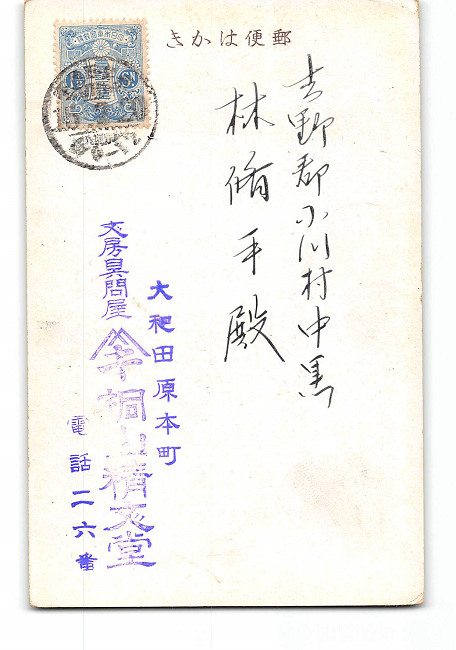 きかは便郵
吉野郡小川村中黒
林脩平殿
大和田原本町
文房具問屋
桐山精文堂
電話二六番